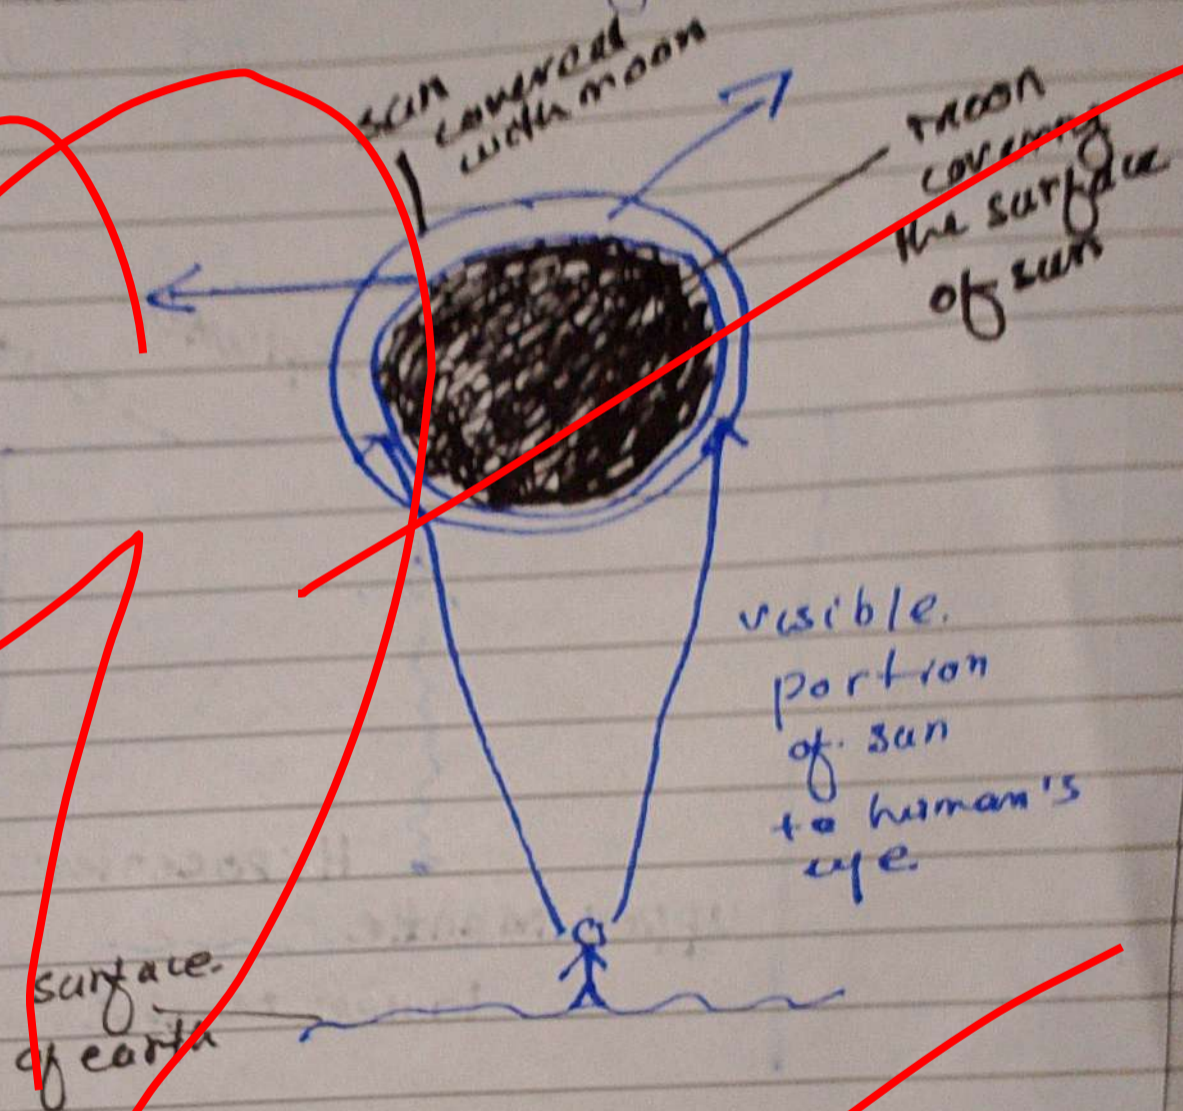 sun
covered
with moon
moon
covering
the surface
of sun
visible.
portion
of sun
to human's
eye.
surface.
of earth